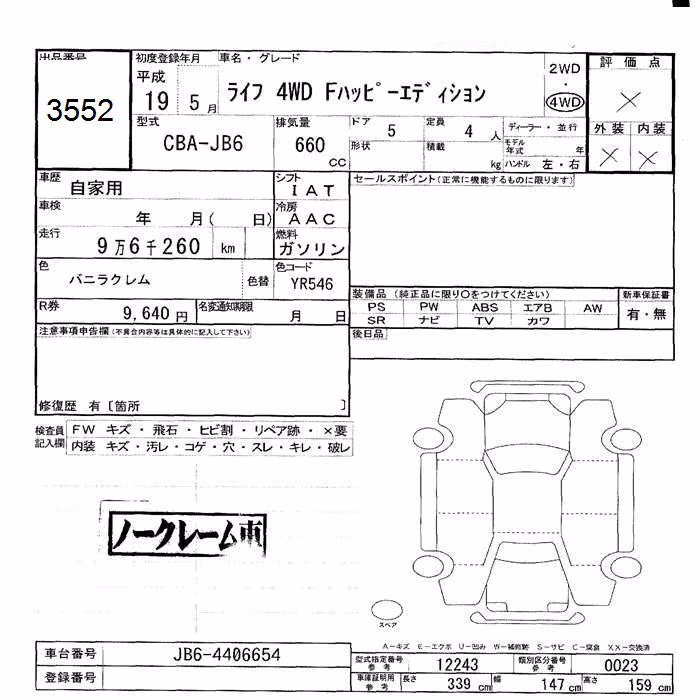 出品番号
3552
初度登録年月
平成
19 5 月
車名・グレード
ライフ 4WD Fハッピーエディション
2WD
・
4WD
評価点
×
外装 内装
× ×
型式
CBA-JB6
排気量
660
CC
ドア
5
定員
4 人
形状
積載
kg
ディーラー・並行
モデル年式 年
ハンドル 左・右
車歴
自家用
シフト
IAT
車検
年 月( 日)
冷房
AAC
走行
9万6千260 km
燃料
ガソリン
色
バニラクレム
色替
色コード
YR546
R券
9,640 円
名変通知期限
月 日
セールスポイント(正常に機能するものに限ります)
装備品 (純正品に限り○をつけてください)
PS PW ABS エアB AW
SR ナビ TV カワ
新車保証書
有・無
後日品
注意事項申告欄(不具合内容等は具体的に記入して下さい)
修復歴 有〔箇所 〕
検査員記入欄
FW キズ・飛石・ヒビ割・リペア跡・×要
内装 キズ・汚レ・コゲ・穴・スレ・キレ・破レ
ノークレーム車
スペア
A-キズ E-エクボ U-凹み W-補修跡 S-サビ C-腐食 XX-交換済
車台番号
JB6-4406654
登録番号
型式指定番号
参考
12243
類別区分番号
参考
0023
車庫証明用
参考
長さ
339 cm
幅
147 cm
高さ
159 cm